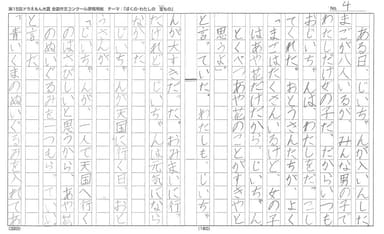 第15回ドラえもん大賞 全国作文コンクール原稿用紙 テーマ:「ぼくの・わたしの 宝もの」
No. 4
ある日、じいちゃんが入いんした。
まごが八人いるが、みんな男の子で
わたしだけ女の子だ。だからいつも
おじいちゃんは、わたしをだっこし
てくれた。おとうさんたちが、よく
「まごはたくさんいるけど、女の子
はあや花だけだから、じいちゃん、
とくべつあや花のことがすきやと
思うよ。」
と言っていた。わたしも、じいちゃ
んが大すきだった。おみまいに行っ
たけれど、じいちゃんは元気になら
なかった。
じいちゃんが天国に行く日、おと
うさんが、
「じいちゃんが、一人で天国へ行く
のはさびしいと思うから、あや花
のぬいぐるみを一つもらっていい
と言った。
青いくまのぬいぐるみを入れてあ
(320)
(160)